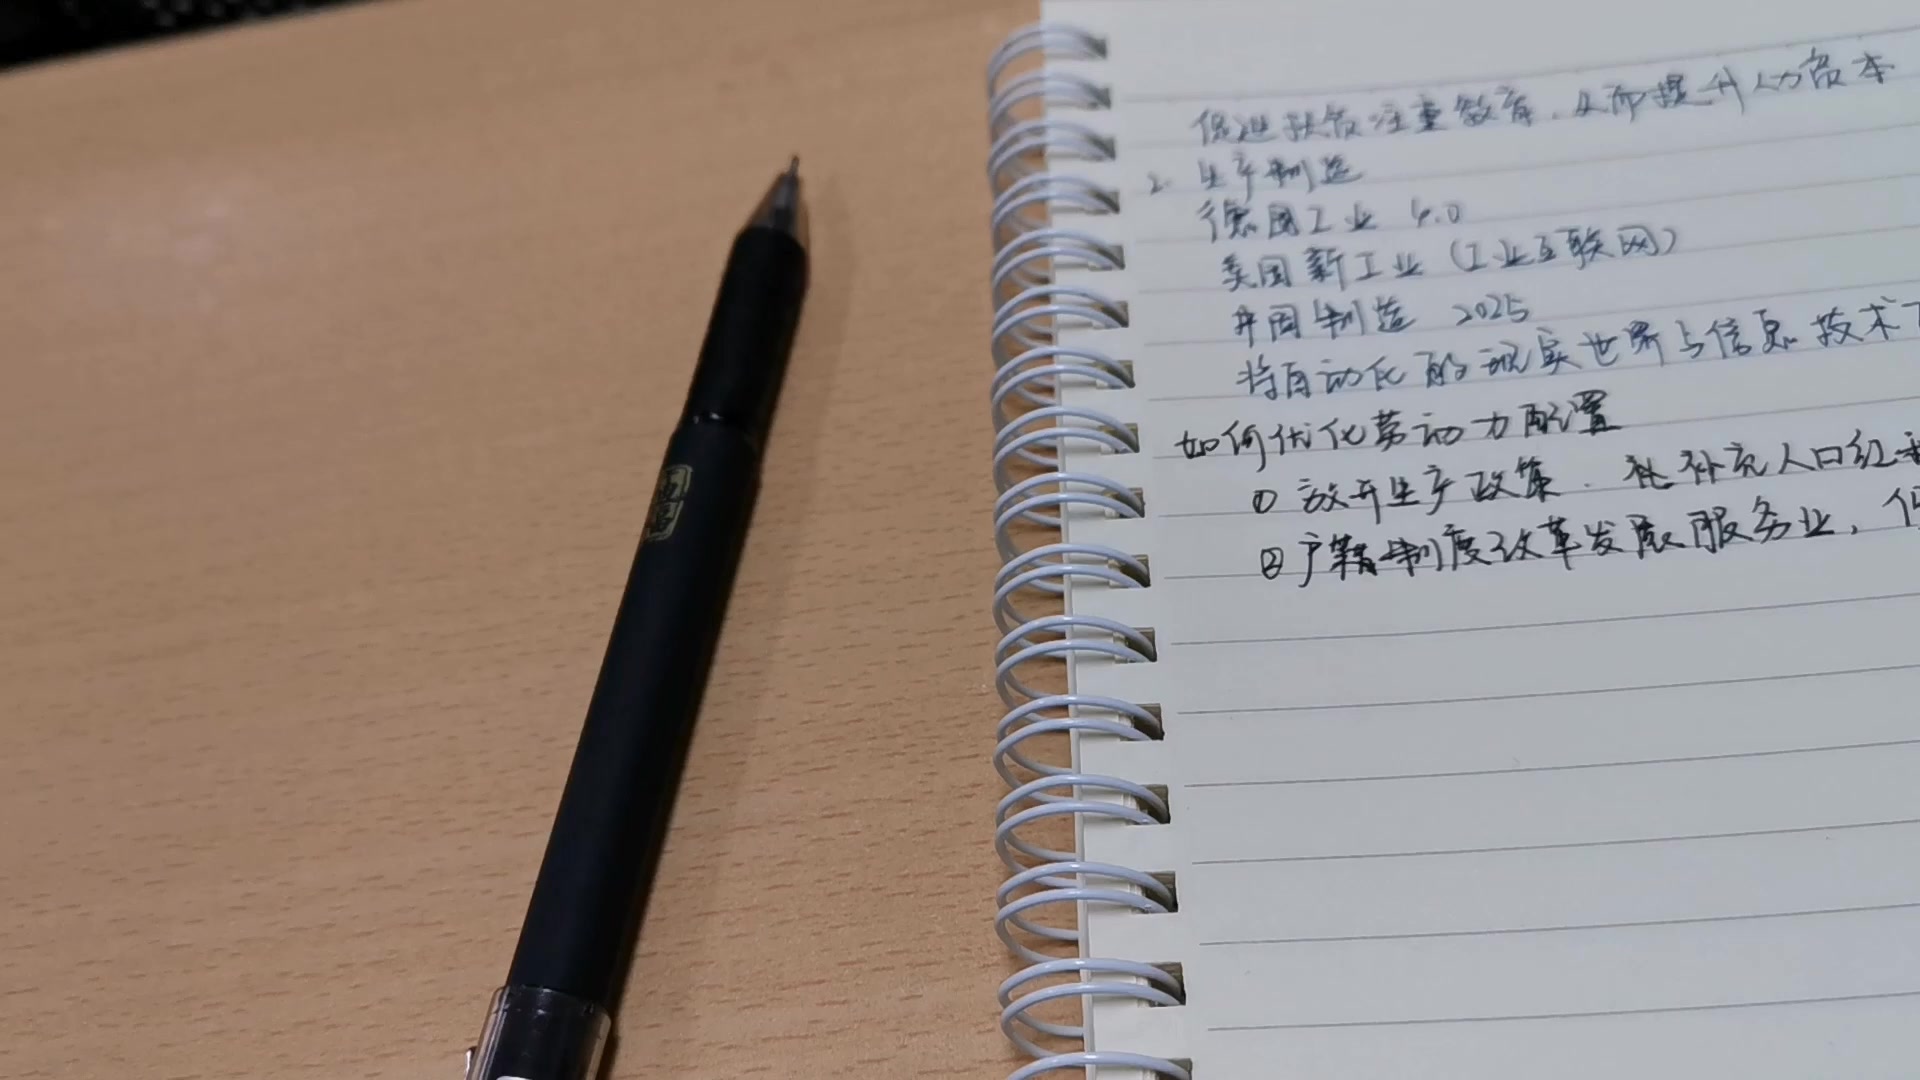 促进扶贫注重教育，从而提升人力资本
2. 生产制造
德国工业 4.0
美国新工业（工业互联网）
中国制造 2025
将自动化的现实世界与信息技术
如何优化劳动力配置
① 放开生产政策. 补充人口红
② 户籍制度改革发展服务业，